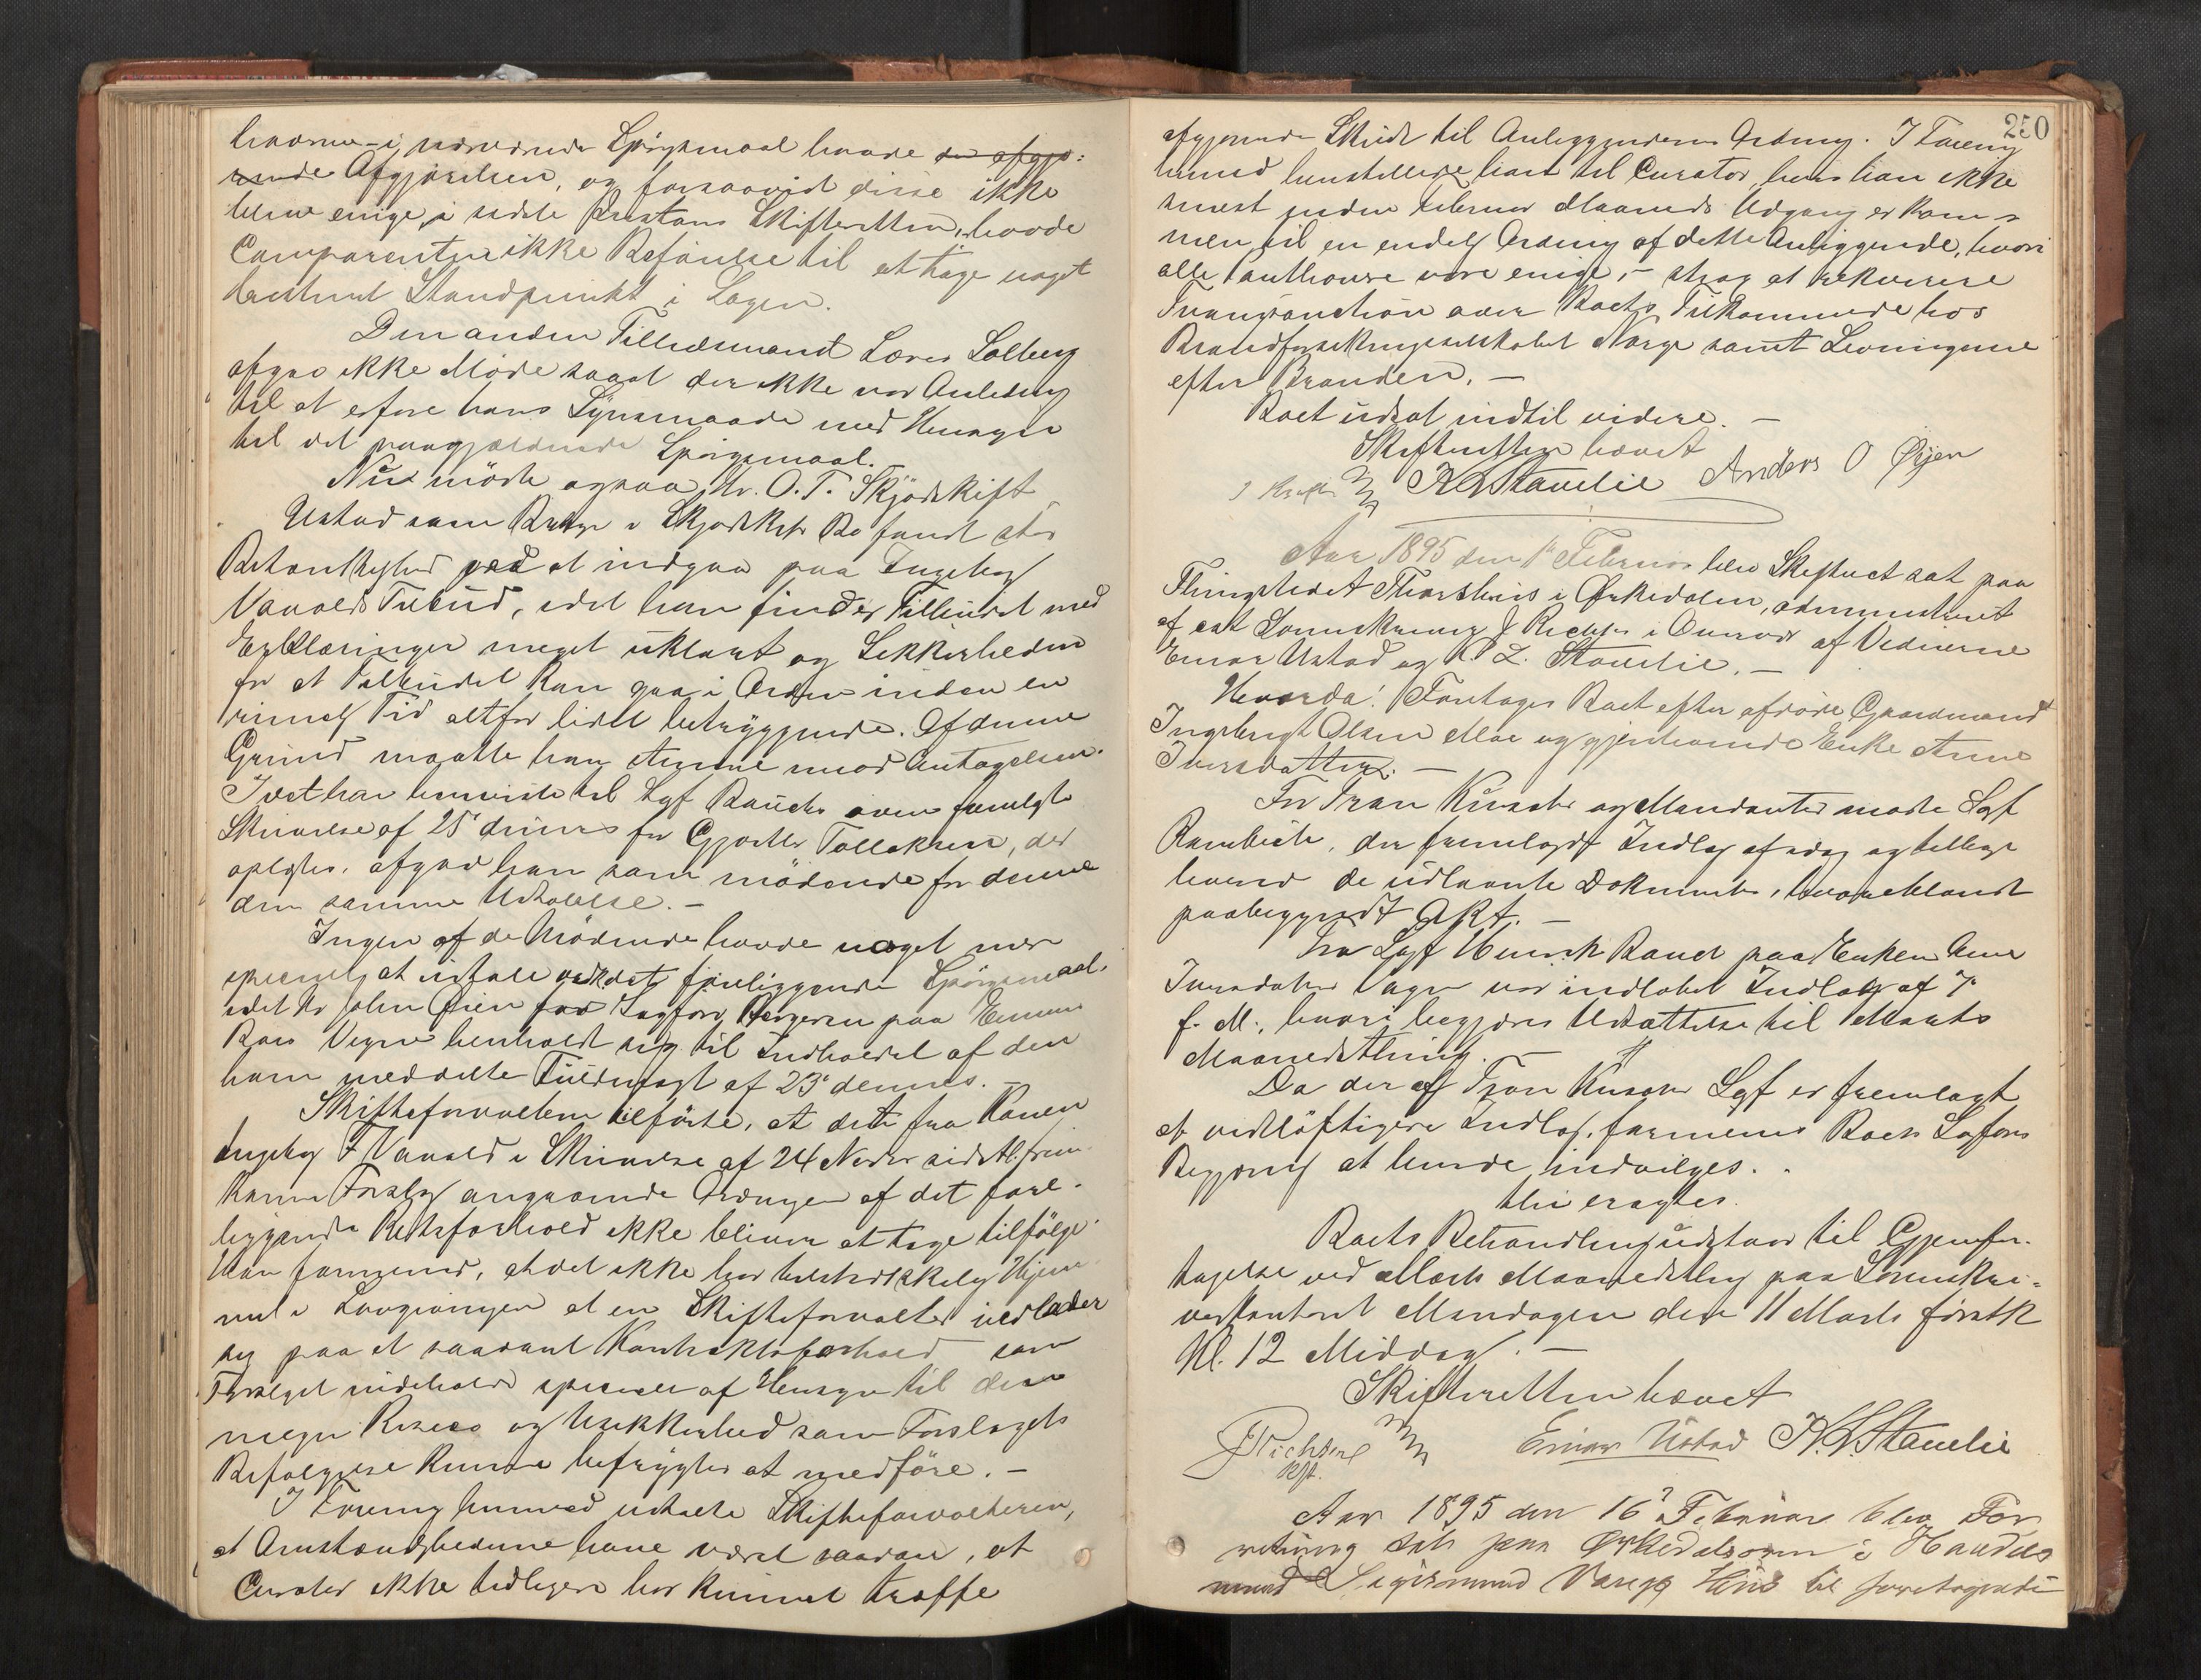 havere i nærværende Spørgsmaal havde den afgjø-
rende Afgjørelsen, og forsaavidt disse ikke
bleve enige, i sidste Instans Skifteretten, havde
Comparenten ikke Beføielse til at tage noget
bestemt Standpunkt i Sagen.
Den anden Tillidsmand Lars Solberg
afgav ikke Møde saaat der ikke var Anledning
til at erfare hans Synsmaade med Hensyn
til det paagjældende Spørgsmaal.
Nu mødte ogsaa Hr. O. T. Skjødskift
Ustad som i Skjødskift Bo fandt stor
Betænkelighed ved at indgaa paa Ingeborg
Vavolds Tilbud, idet han finder Tilbudet med
Erklæringer meget uklart og Sikkerheden
for at Tilbudet kan gaa i Orden inden en
rimelig Tid altfor lidet betryggende. Af denne
Grund maatte han stemme mod Antagelsen.
Idet han henviste til Sgf Bauchs oven fremlagte
Skrivelse af 25 dennes for Gjørtler Tollaksen, der
oplæstes, afgav han som mødende for denne
den samme Udtalelse. –
Ingen af de Mødende havde noget mere
specielt at udtale ved det foreliggende Spørgsmaal,
idet Hr John Øien for Sagfører paa
Boes Vegne henholdt sig til Indholdet af den
ham meddelte Fuldmagt af 23 dennes. –
Skifteforvalteren tilførte, at det fra Konen
Ingeborg F Vavold i Skrivelse af 24 Novbr sidstl. frem-
komne Forslag angaaende Ordningen af det fore-
liggende Retsforhold ikke bliver at tage tilfølge.
Han formener, at det ikke har tilstrækkelig Hjem-
mel i Lovgivningen at en Skifteforvalter indlader
sig paa et saadant Kontraktsforhold som
Forslaget indeholder specielt af Hensyn til den
megen Risico og Usikkerhed som Forslagets
Befølgelse kunde befrygtes at medføre. –
I Forening hermed udtalte Skifteforvalteren,
at Omstændighederne have været saadane, at
Curator ikke tidligere har kunnet træffe
250
afgjørende Skridt til Anliggendets Ordning. I Forening
hermed henstilledes der til Curator, hvis han ikke
senest inden Februar Maaneds Udgang er kom-
men til en endelig Ordning af dette Anliggende, hvori
alle Panthavere vare enige, – strax at rekvirere
Tvangsauction over Boets Tilkommende hos
Brandforsikringsselskabet Norge samt Levningerne
efter Branden. –
Boet udsat indtil videre. –
Skifteretten hævet
K L Stavelie Anders O Øyen
Aar 1895 den 1 Februar blev Skifteret sat paa
Thingstedet Thorshus i Ørkedalen, administreret
af cst Sorenskriver J Richter i Overvær af Vidnerne
Einar Ustad og K. L. Stavelie. –
Hvorda: Foretages Boet efter afdøde Gaardmand
Ingebrigt Olsen Moe og gjenlevende Enke Anne
Iversdatter. –
For Iver og Mandanter mødte Sgf
Rambech, der fremlagde Indlæg af idag og tillige
leverede de udlaante Dokumenter, hvoriblandt
paabegyndt Akt. –
Fra Sgf Henrik Bauck paa Enken Anne
Iversdatters Vegne var indløbet Indlæg af 7
f. M., hvori begjæres Udsættelse til Marts
Maanedsthing. –
Da der af Sgf er fremlagt
et vidtløftigere Indlæg, formenes Boets Sagførers
Begjæring at burde indvilges. –
thi eragtes:
Boets Behandling udstaar til Gjenfor-
tagelse ved Marts Maanedsthing paa Sorenskri-
verkontoret Mandagen den 11 Marts førstk
Kl. 12 Middag. –
Skifteretten hævet
JRichter
kst.
Einar Ustad K. L. Stavelie
Aar 1895 den 16 Februar blev For
retning sat paa Ørkedalsøren i Handels
mand Sigismund Hus til foretagende